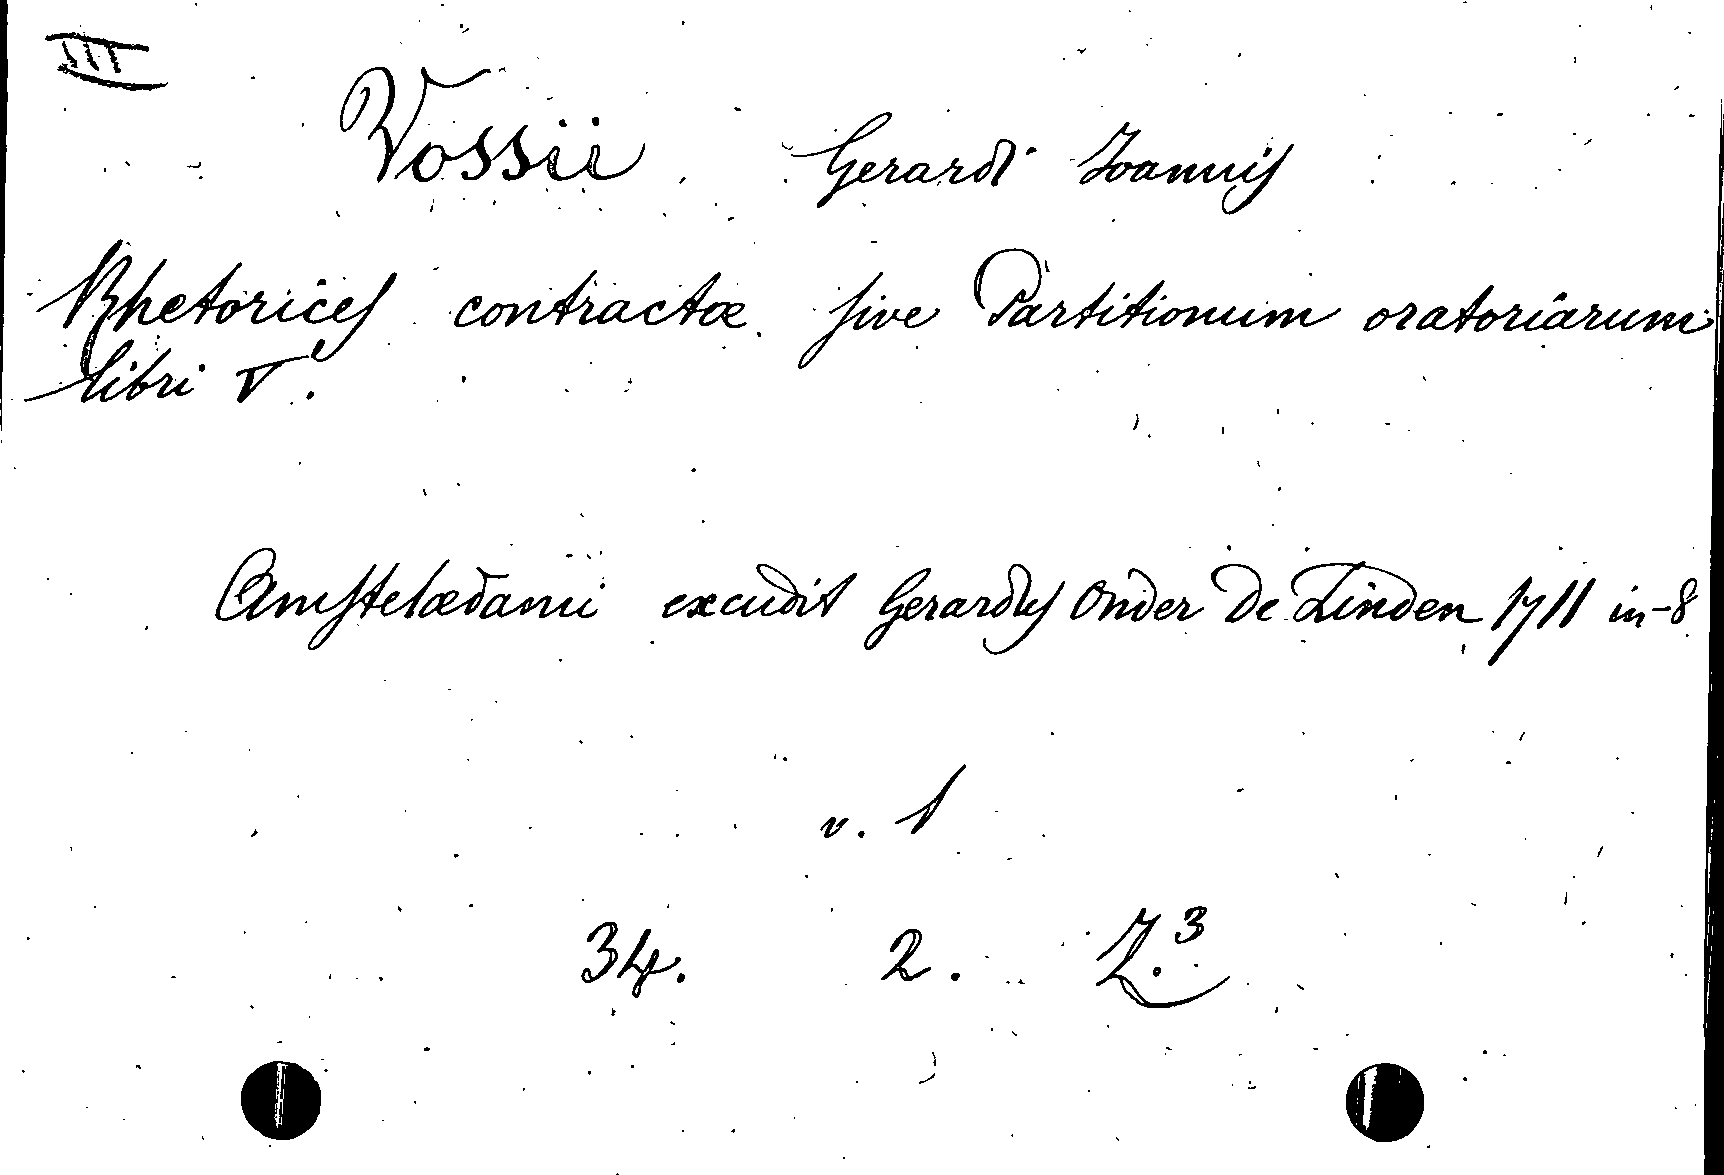 III
Vossii Gerardi Ioannis
Rhetorices contractæ sive Partitionum oratoriarum
libri V.
Amstelædami excudit Gerardus Onder De Linden 1711 in-8
v. 1
34. 2. Z.³